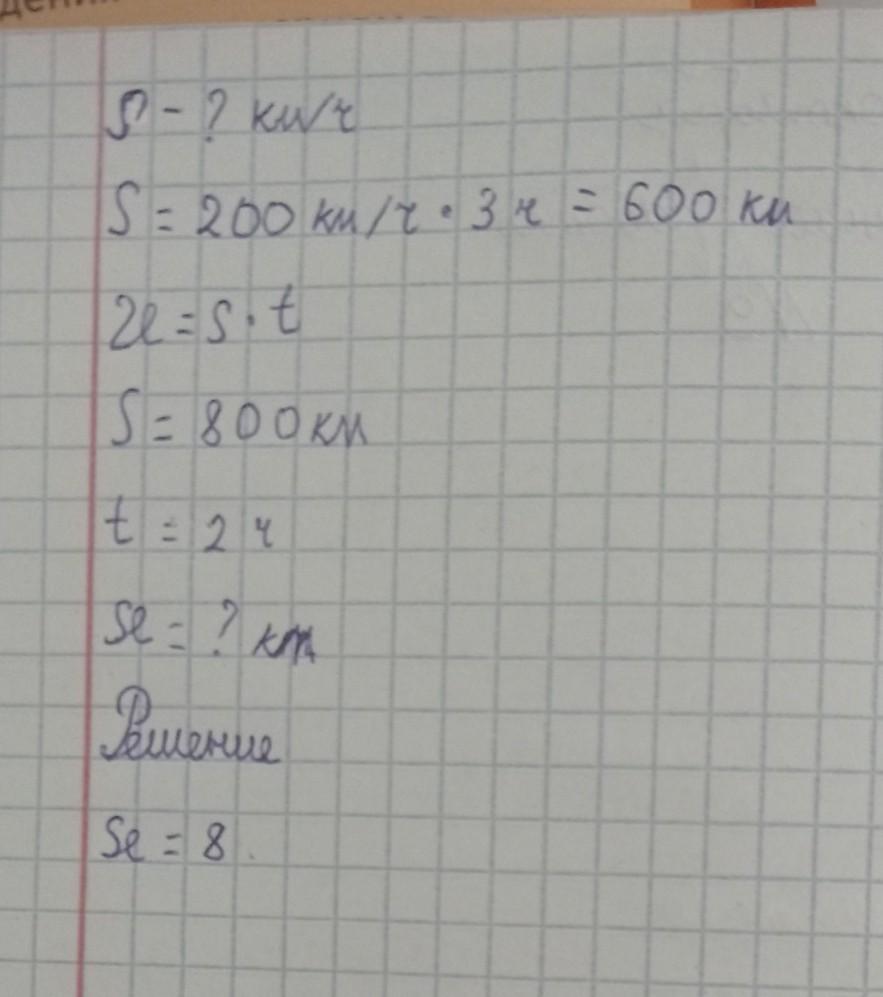 S - ? км/ч
S = 200 км/ч · 3 ч = 600 км
υ = s · t
S = 800 км
t = 2 ч
υ = ? км
Решение
υ = 8